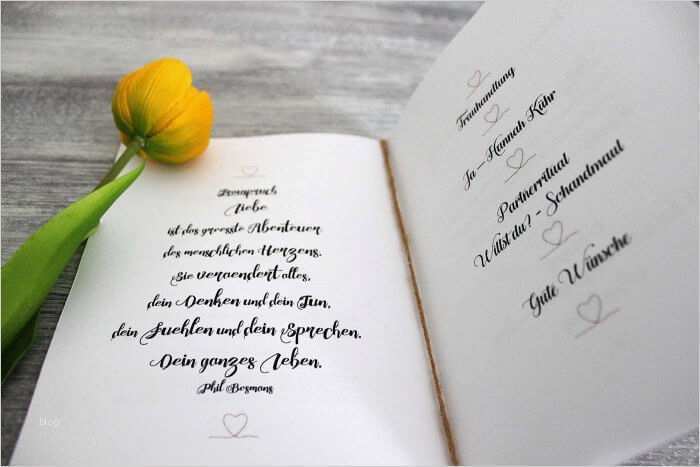 Trauspruch
Liebe
ist das groesste Abenteuer
des menschlichen Herzens.
Sie veraendert alles,
dein Denken und dein Tun,
dein Fuehlen und dein Sprechen.
Dein ganzes Leben.
Phil Bosmans
blog
Trauhandlung
Ja – Hannah Kähr
Partnerritual
Willst du? - Schandmaul
Gute Wünsche